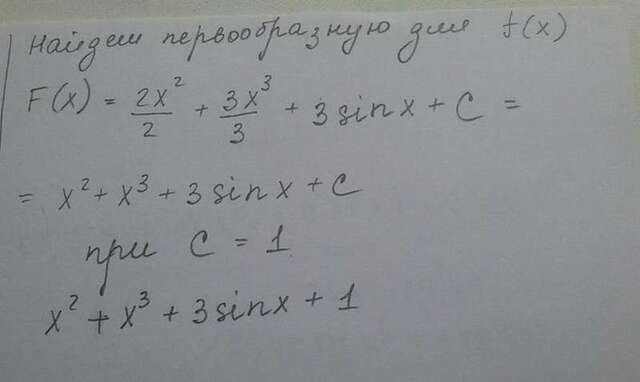 Найдем первообразную для f(x)
F(x) = 2x²/2 + 3x³/3 + 3 sin x + C =
= x² + x³ + 3 sin x + C
при C = 1
x² + x³ + 3 sin x + 1